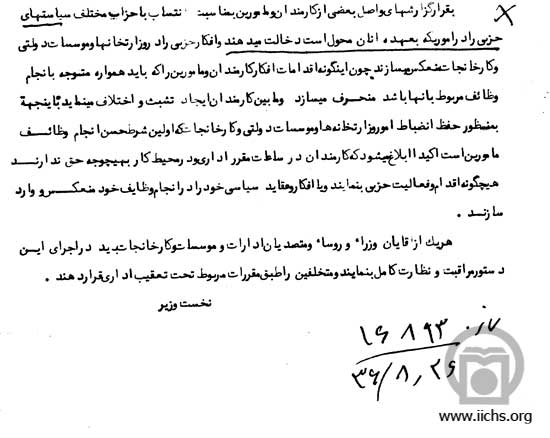 بقرار گزارشهای واصل بعضی از کارمندان و مامورین بمناسبت انتساب باحزاب مختلف سیاستهای
حزبی را در اموریکه بعهده آنان محول است دخالت میدهند و افکار حزبی را در وزارتخانها و موسسات دولتی
وکارخانجات منعکس میسازند چون اینگونه اقدامات افکار کارمندان و مامورین را که باید همواره متوجه بانجام
وظائف مربوط بانها باشد منحرف میسازد و مابین کارمندان ایجاد تشتت و اختلاف مینماید باینجهة
بمنظور حفظ انضباط امور وزارتخانه ها و موسسات دولتی و کارخانجات که اولین شرط حسن انجام وظائف
مامورین است اکیدا ابلاغ میشود که کارمندان در ساعات مقرر اداری و در محیط کار بهیچوجه حق ندارند
هیچگونه اقدام و فعالیت حزبی بنمایند و یا افکار و عقاید سیاسی خود را در انجام وظایف خود منعکس و وارد
سازند .
هریک از آقایان وزراء و روساء و متصدیان ادارات و موسسات و کارخانجات باید در اجرای این
دستور مراقبت و نظارت کامل بنمایند و متخلفین را طبق مقررات مربوط تحت تعقیب اداری قرار دهند .
نخست وزیر
۱۶۸۹۳
۳۶/۸/۲۶
www.iichs.org